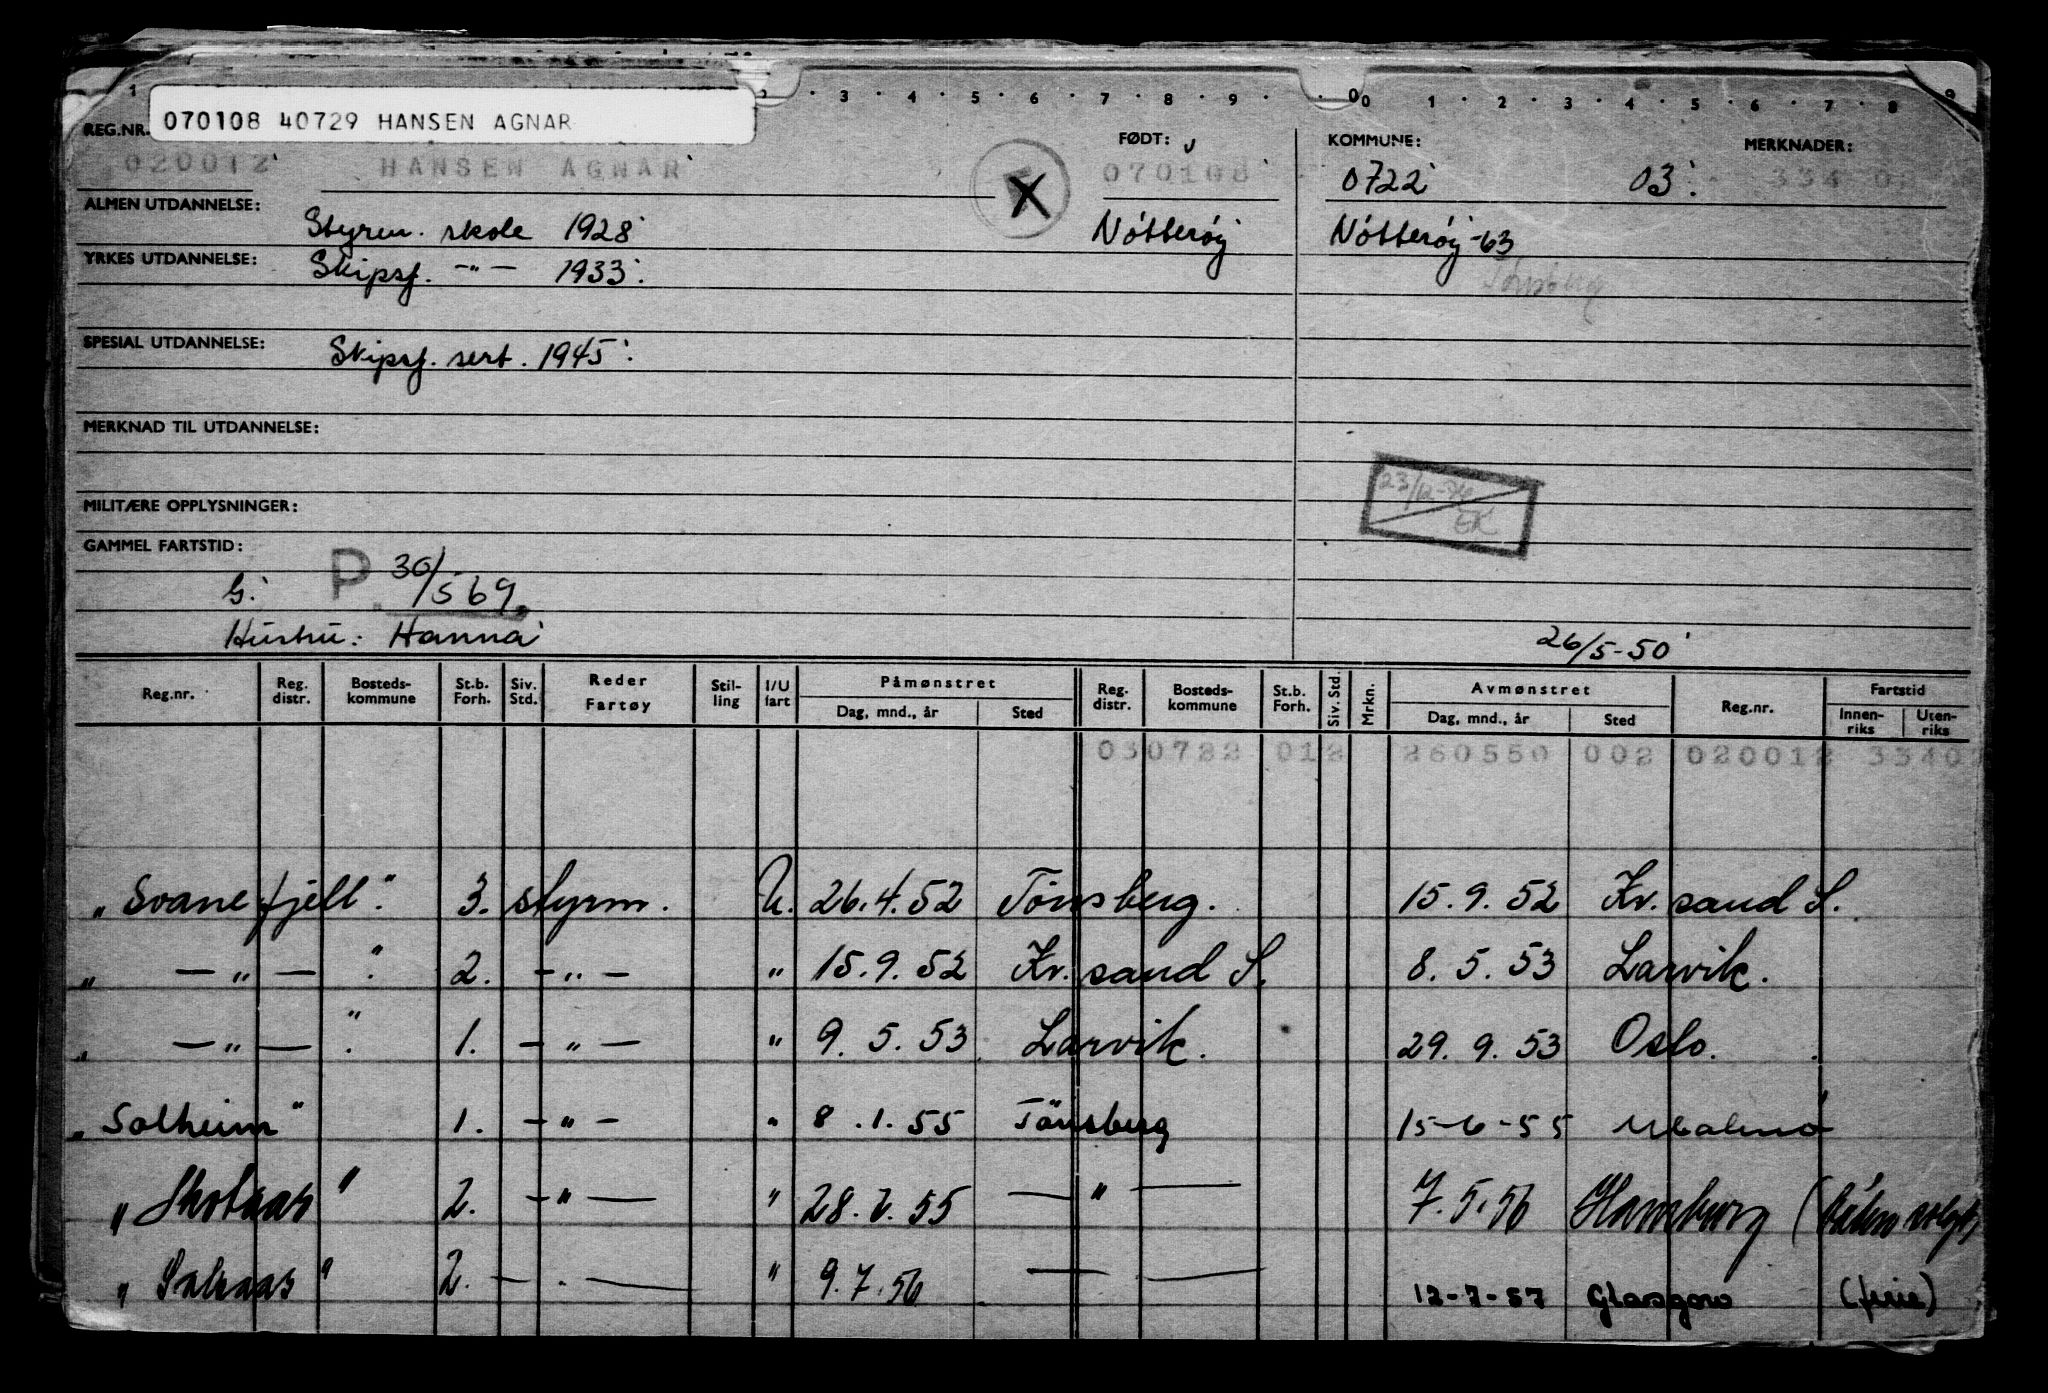 1 2 · 3 · 4 · 5 · 6 · 7 · 8 · 9 · 0 0 1 · 2 · 3 · 4 · 5 · 6 · 7 · 8 9
070108 40729 HANSEN AGNAR
REG.NR. FØDT: KOMMUNE: MERKNADER:
020012 HANSEN AGNAR 070108 0722 03
ALMEN UTDANNELSE: Styrm. skole 1928 Nötteröy Nötteröy -63
YRKES UTDANNELSE: Skipsf. -"- 1933. Tönsberg
SPESIAL UTDANNELSE: Skipsf. sert. 1945
MERKNAD TIL UTDANNELSE:
23/12-76
EK
MILITÆRE OPPLYSNINGER:
GAMMEL FARTSTID:
G. P. 30/5 69.
Hustru: Hanna 26/5-50
Reg.nr. Reg. distr. Bosteds-kommune St.b. Forh. Siv. Std. Reder Fartøy Stil-ling I/U fart Påmønstret Dag, mnd., år Sted Reg. distr. Bosteds-kommune St.b. Forh. Siv. Std. Mrkn. Avmønstret Dag, mnd., år Sted Reg.nr. Fartstid Innen-riks Uten-riks
030722 012 260550 002 020012 33407
"Svanefjell". 3. styrm. U. 26.4.52 Tönsberg. 15.9.52 Kr. sand S.
" —"— ". 2. —"— " 15.9.52 Kr. sand S. 8.5.53 Larvik.
" —"— ". 1. —"— " 9.5.53 Larvik. 29.9.53 Oslo.
"Solheim" 1. —"— " 8.1.55 Tönsberg 15-6-55 Malmö
" " 2. —"— " 28.7.55 —"— 7.5.56 Hamburg (båten solgt)
" " 2. —"— " 9.7.56 — — 12-7-57 Glasgow (ferie)